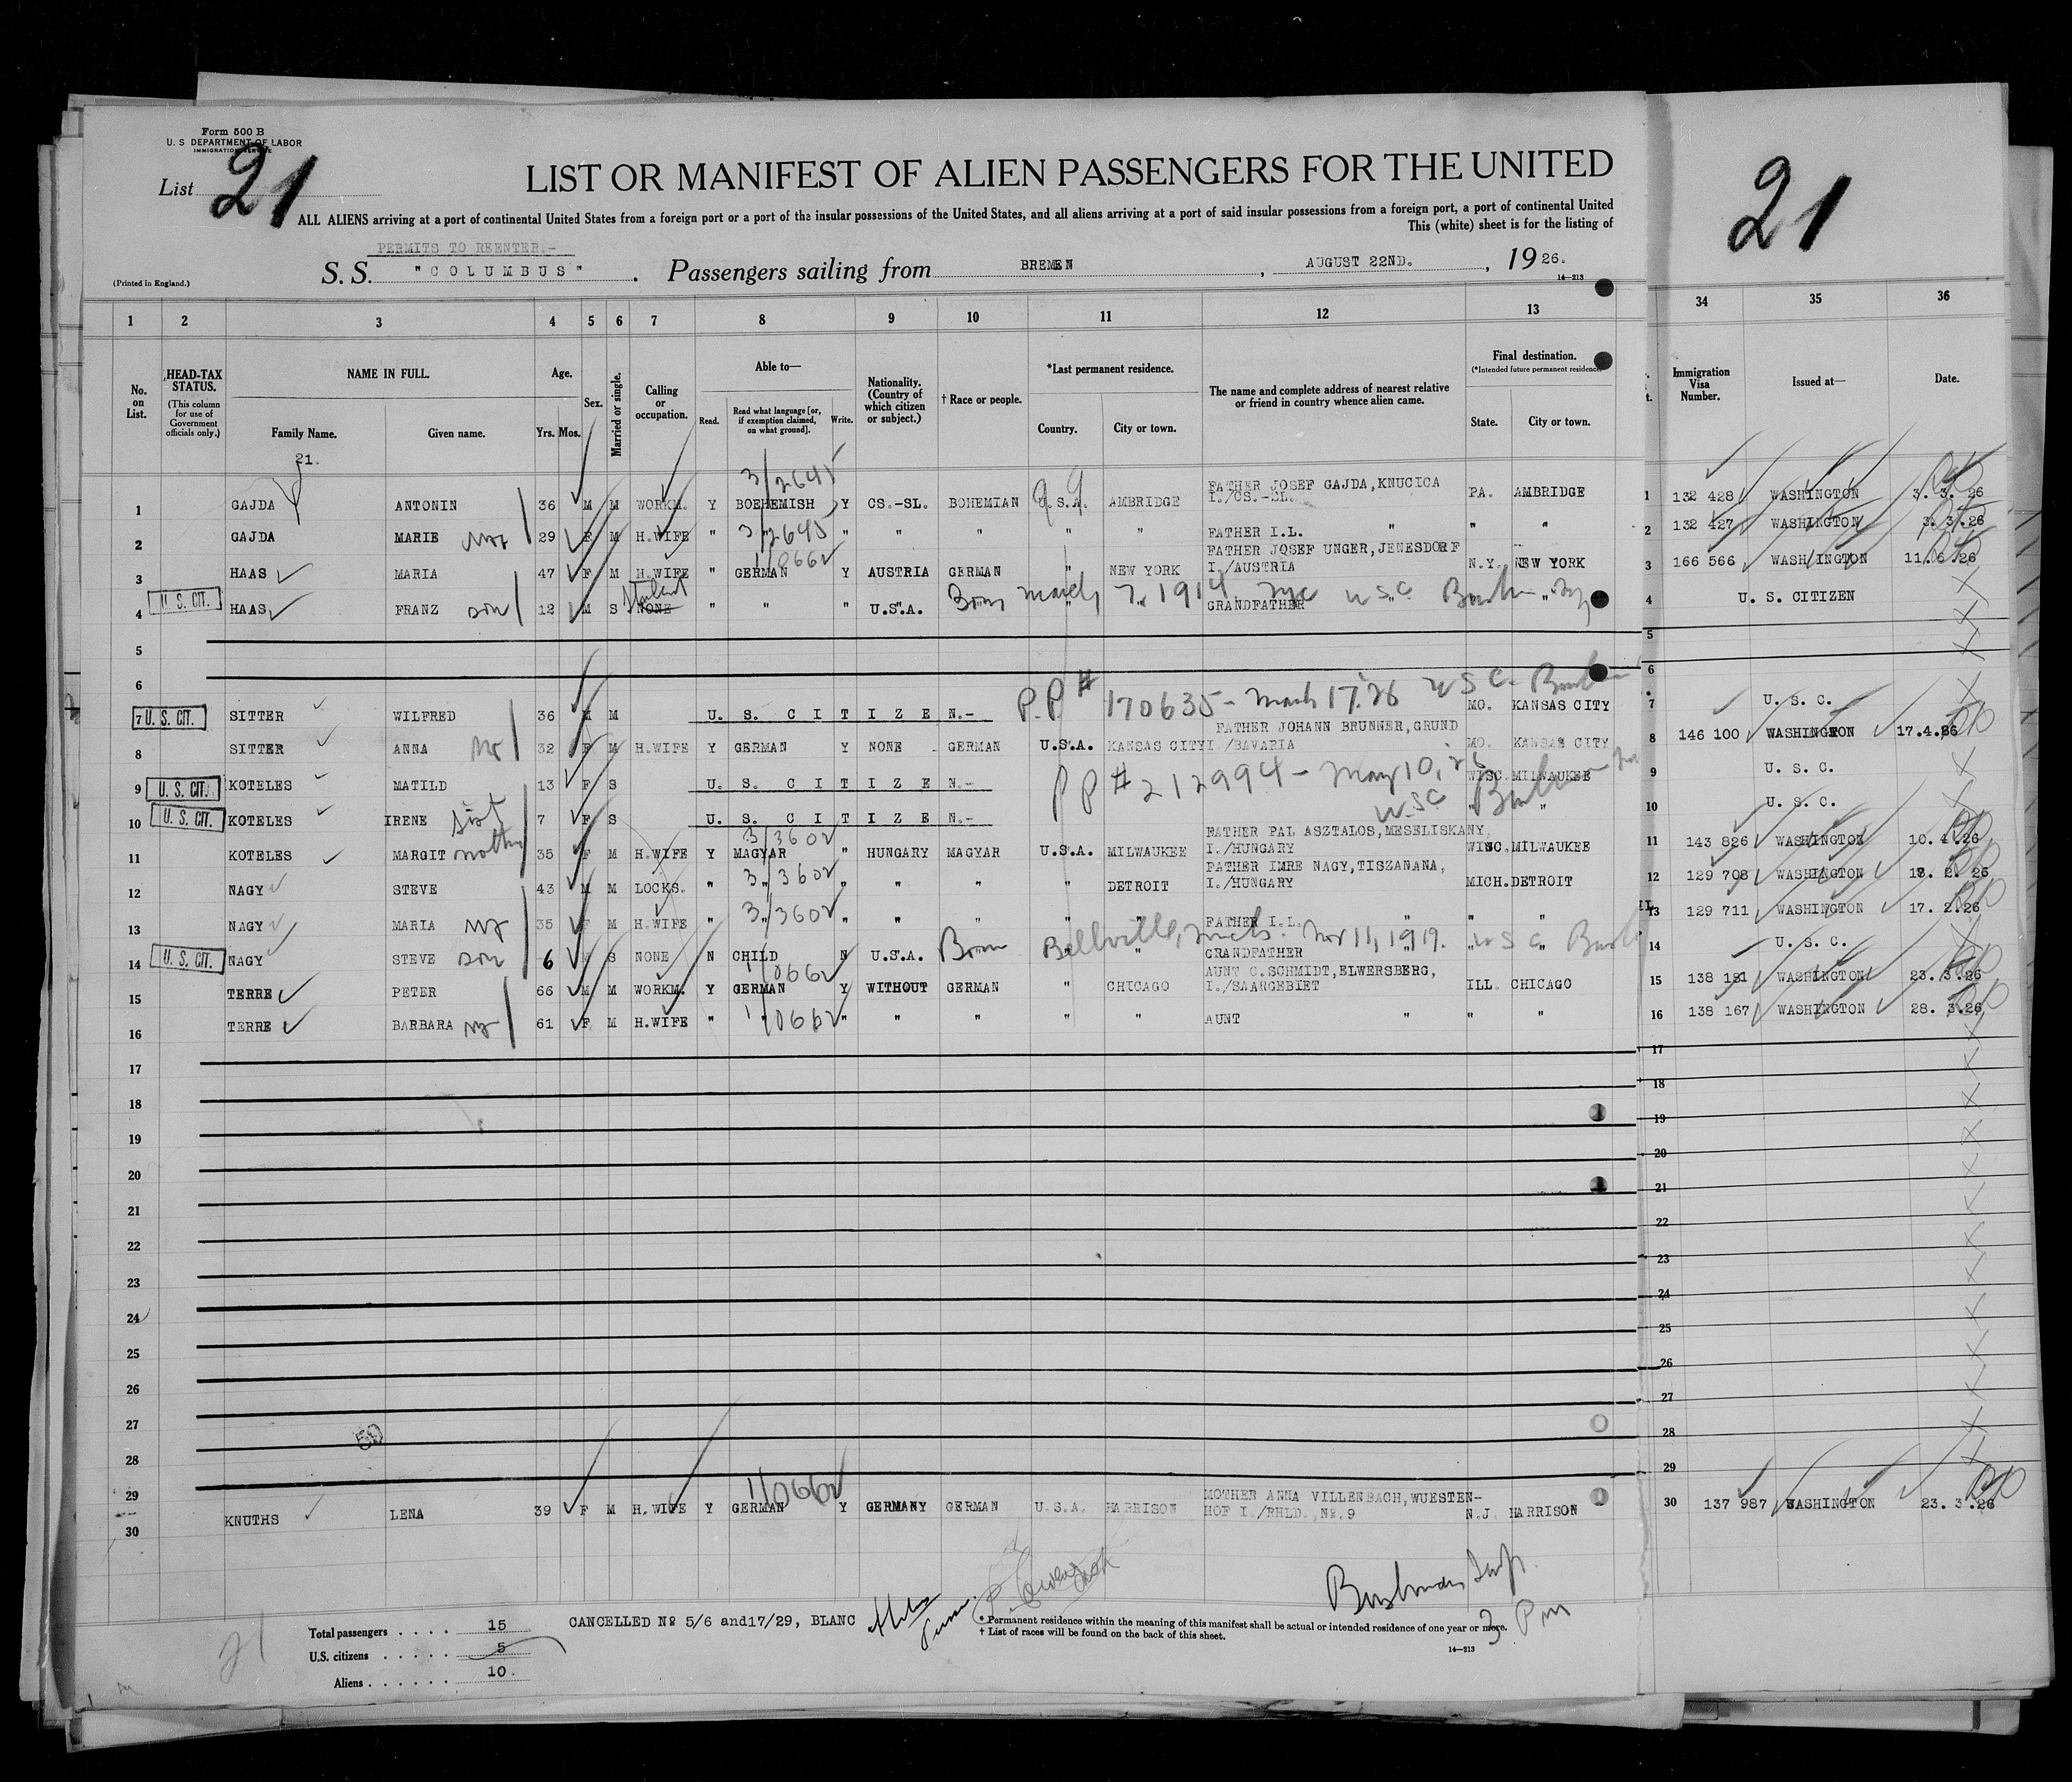 Form 500 B
U. S DEPARTMENT OF LABOR
IMMIGRATION SERVICE
List 21
21
LIST OR MANIFEST OF ALIEN PASSENGERS FOR THE UNITED
ALL ALIENS arriving at a port of continental United States from a foreign port or a port of the insular possessions of the United States, and all aliens arriving at a port of said insular possessions from a foreign port, a port of continental United
This (white) sheet is for the listing of
PERMITS TO REENTER.-
S. S. "COLUMBUS". Passengers sailing from BREMEN, AUGUST 22ND., 19 26.
(Printed in England.)
14—213
1 2 3 4 5 6 7 8 9 10 11 12 13 34 35 36
No. on List.
HEAD-TAX STATUS.
(This column for use of Government officials only.)
NAME IN FULL.
Family Name. Given name.
21.
Age.
Yrs. Mos.
Sex.
Married or single.
Calling or occupation.
Able to—
Read. Read what language [or, if exemption claimed, on what ground]. Write.
Nationality. (Country of which citizen or subject.)
† Race or people.
*Last permanent residence.
Country. City or town.
The name and complete address of nearest relative or friend in country whence alien came.
Final destination.
(*Intended future permanent residence.)
State. City or town.
Immigration Visa Number.
Issued at—
Date.
3/2645
1 GAJDA ANTONIN 36 M M WORKM. Y BOEHEMISH Y CS.-SL. BOHEMIAN U.S.A. AMBRIDGE FATHER JOSEF GAJDA,KNUCICA I./CS.-SL. PA. AMBRIDGE 1 132 428 WASHINGTON 3. 3. 26
2 GAJDA MARIE 29 F M H.WIFE " 3/2645 " " " " " FATHER I.L. " " " 2 132 427 WASHINGTON 3. 3.26
1/0662
3 HAAS MARIA 47 F M H.WIFE " GERMAN Y AUSTRIA GERMAN " NEW YORK FATHER JOSEF UNGER,JENESDORF I./AUSTRIA N.Y. NEW YORK 3 166 566 WASHINGTON 11.6.26
4 U. S. CIT. HAAS FRANZ son 12 M S NONE Student " " " U.S.A. Born March 7, 1914 nyc USC GRANDFATHER " " 4 U. S. CITIZEN
5 5
6 6
P.P # 170635 - March 17.26 USC
7 U. S. CIT. SITTER WILFRED 36 M M U. S. CITIZEN.- MO. KANSAS CITY 7 U. S. C.
8 SITTER ANNA 32 F M H.WIFE Y GERMAN Y NONE GERMAN U.S.A. KANSAS CITY FATHER JOHANN BRUNNER,GRUND I./BAVARIA MO. KANSAS CITY 8 146 100 WASHINGTON 17.4.26
PP # 212994 - May 10, 26
9 U. S. CIT. KOTELES MATILD 13 F S U. S. CITIZEN.- WISC. MILWAUKEE 9 U. S. C.
USC
10 U. S. CIT. KOTELES IRENE sist 7 F S U. S. CITIZEN.- " " 10 U. S. C.
3/3602
11 KOTELES MARGIT mother 35 F M H.WIFE Y MAGYAR " HUNGARY MAGYAR U.S.A. MILWAUKEE FATHER PAL ASZTALOS,MESELISKANY, I./HUNGARY WISC. MILWAUKEE 11 143 826 WASHINGTON 10. 4.26
12 NAGY STEVE 43 M M LOCKS. " 3/3602 " " " " DETROIT FATHER IMRE NAGY,TISZANANA, I./HUNGARY MICH. DETROIT 12 129 708 WASHINGTON 18. 2. 26
13 NAGY MARIA 35 F M H.WIFE " 3/3602 " " " " " FATHER I.L. " " " 13 129 711 WASHINGTON 17. 2.26
14 U. S. CIT. NAGY STEVE son 6 M S NONE N CHILD N U.S.A. Born Bellville, Mich. Nov 11, 1919. USC " " GRANDFATHER " " " 14 U. S. C.
1/0662
15 TERRE PETER 66 M M WORKM. Y GERMAN Y WITHOUT GERMAN " CHICAGO AUNT C.SCHMIDT,ELWERSBERG, I./SAARGEBIET ILL. CHICAGO 15 138 181 WASHINGTON 23. 3.26
16 TERRE BARBARA 61 F M H.WIFE " 1/0662 " " " " " AUNT " " " 16 138 167 WASHINGTON 28. 3.26
17 17
18 18
19 19
20 20
21 21
22 22
23 23
24 24
25 25
26 26
27 27
28 28
29 29
1/0662
30 KNUTHS LENA 39 F M H.WIFE Y GERMAN Y GERMANY GERMAN U.S.A. HARRISON MOTHER ANNA VILLENBACH,WUESTEN- HOF I./RHLD.,No.9 N.J. HARRISON 30 137 987 WASHINGTON 23. 3.26
3 Pm
CANCELLED No 5/6 and17/29, BLANC
* Permanent residence within the meaning of this manifest shall be actual or intended residence of one year or more.
† List of races will be found on the back of this sheet.
14—213
21
Total passengers . . . . 15
U.S. citizens . . . . . 5
Aliens . . . . . . 10.